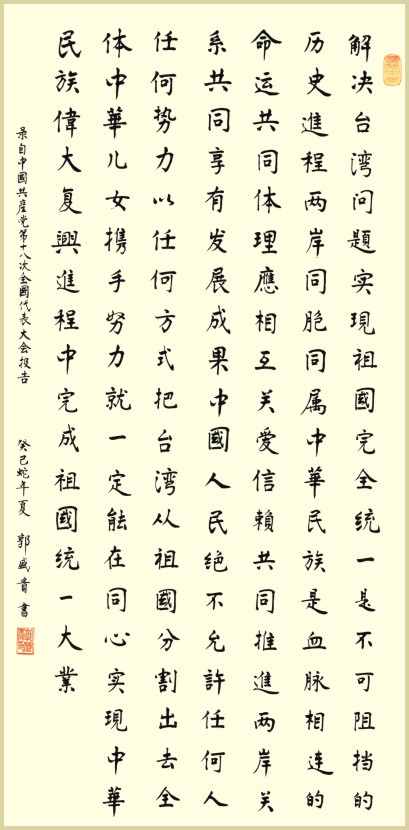 解决台湾问題实現祖國完全统一是不可阻挡的
历史進程两岸同胞同属中華民族是血脉相连的
命运共同体理應相互关爱信賴共同推進两岸关
系共同享有发展成果中國人民绝不允許任何人
任何势力以任何方式把台湾从祖國分割出去全
体中華儿女携手努力就一定能在同心实現中華
民族偉大复興進程中完成祖國统一大業
录自中國共產党第十八次全國代表大会报告 癸巳蛇年夏 郭盛贵書